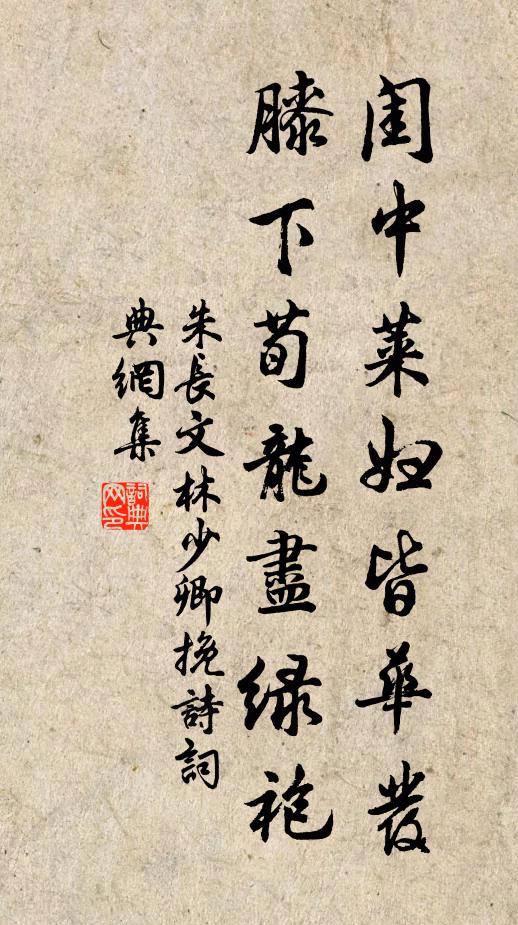 閨中萊婦皆華發
膝下荀龍盡緑袍
朱長文林少卿挽詩詞
典網集
詞典網印